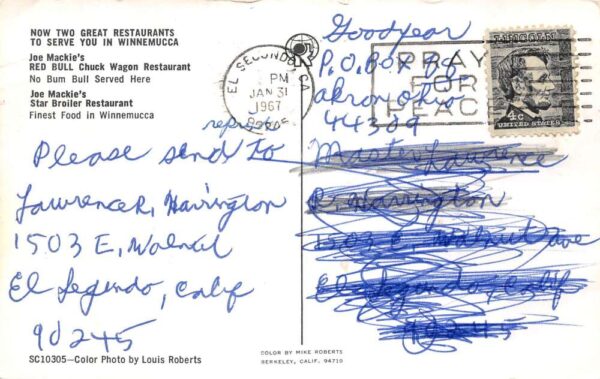 NOW TWO GREAT RESTAURANTS
TO SERVE YOU IN WINNEMUCCA
Joe Mackie's
RED BULL Chuck Wagon Restaurant
No Bum Bull Served Here
Joe Mackie's
Star Broiler Restaurant
Finest Food in Winnemucca
EL SEGUNDO, CA
PM
JAN 31
1967
PRAY
FOR
PEACE
LINCOLN
4c
UNITED STATES
Goodyear
P.O. Box
Akron Ohio
44309
Please send to
Lawrence R. Harrington
1503 E, Walnut
El Segundo, Calif
90245
Master Lawrence
R. Harrington
1503 E. Walnut Ave
El Segundo, Calif
90245
SC10305—Color Photo by Louis Roberts
COLOR BY MIKE ROBERTS
BERKELEY, CALIF. 94710